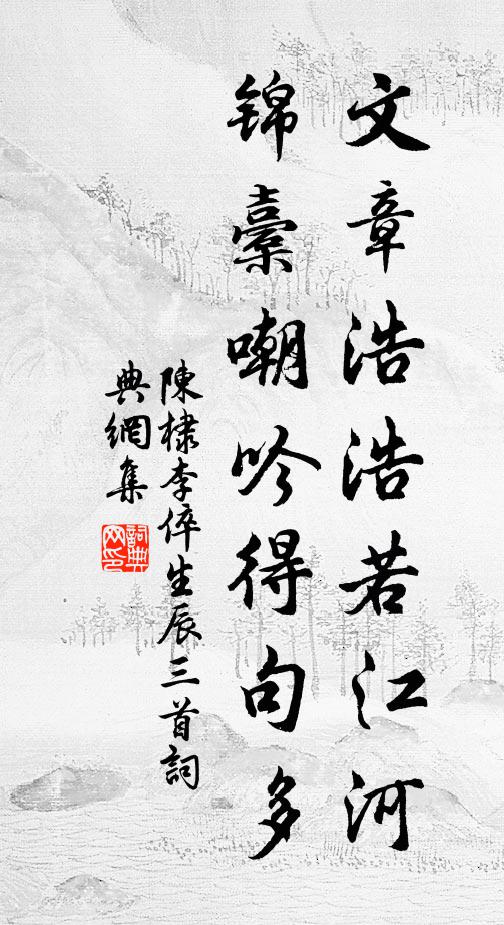 文章浩浩若江河
锦橐嘲吟得句多
陳棣李倅生辰三首詞
典網集
詞典網印